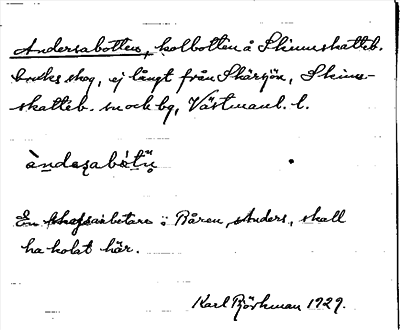 Andersabotten, kolbotten å Skinnskatteb.
bruks skog, ej långt från Skärsjön, Skinn-
skatteb. sn och bg, Västmanl. l.
àndeṣabòtn̥
En skogsarbetare: Båren, Anders, skall
ha kolat här.
Karl Björkman 1929.